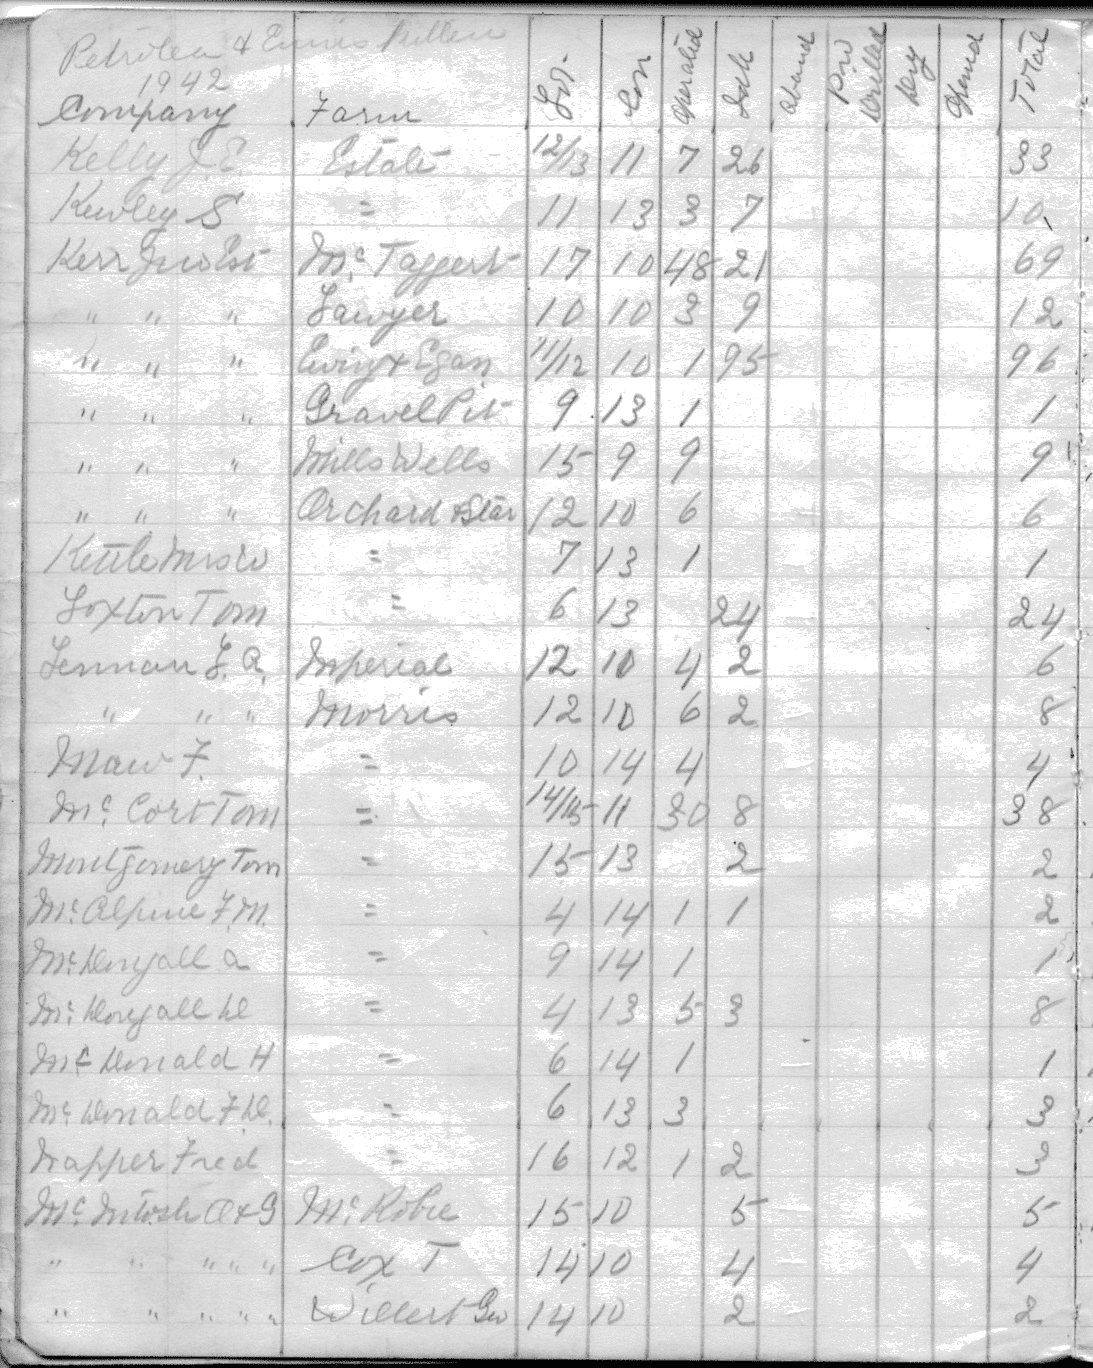 Petrolea & Ennis Killen
1942
Company Farm Lot. Con Operated Idle Aband Drilled Dry Opened Total
Kelly J. E. Estate 12/13 11 7 26 33
Kewley S = 11 13 3 7 10
Kerr Jno Est Mc Taggert 17 10 48 21 69
" " " Sawyer 10 10 3 9 12
" " " Ewing & Egan 11/12 10 1 95 96
" " " Gravel Pit 9 13 1 1
" " " Mills Wells 15 9 9 9
" " " Orchard & Star 12 10 6 6
Kettle = 7 13 1 1
Loxton Tom = 6 13 24 24
Lennan L. A. Imperial 12 10 4 2 6
" " " Morris 12 10 6 2 8
Maw F. = 10 14 4 4
Mc Cort Tom = 14/15 11 30 8 38
Montgomery Tom = 15 13 2 2
Mc Alpine F. M. = 4 14 1 1 2
Mc Dougall A = 9 14 1 1
Mc Dougall D = 4 13 5 3 8
Mc Donald H = 6 14 1 1
Mc Donald F. D. = 6 13 3 3
Napper Fred = 16 12 1 2 3
Mc Intosh O & G Mc Robie 15 10 5 5
" " " " " Cox T 14 10 4 4
" " " " " Willert Geo 14 10 2 2